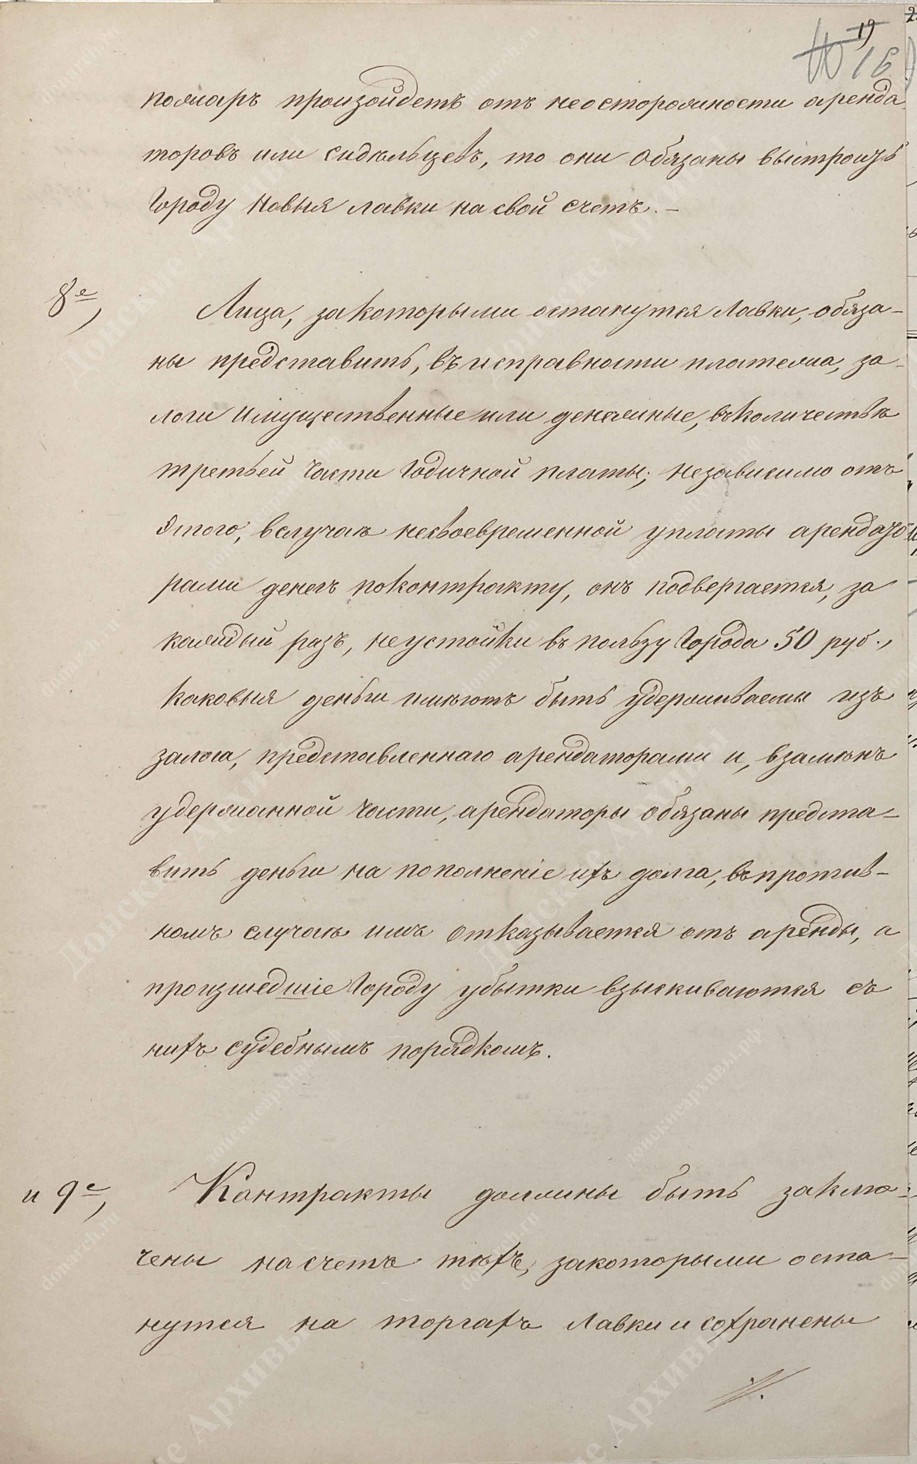 19
16
пожаръ произойдетъ отъ неосторожности аренда
торовъ или сидѣльцевъ, то они обязаны выстроить
Городу новыя лавки на свой счетъ. –
8е, Лица, за которыми останутся Лавки, обяза-
ны представить, въ исправности платежа, за-
логи имущественные или денежные, въ количествѣ
третьей части Годичной платы; независимо отъ
этого, в случаѣ несвоевременной уплаты арендато
рами денегъ по контракту, онъ подвергается, за
каждый разъ, неустойки въ пользу Города 50 руб.,
каковыя деньги имѣютъ быть удерживаемы изъ
залога, представленнаго арендаторами и, взамѣнъ
удержанной части, арендаторы обязаны предста-
вить деньги на пополненіе ихъ долга, въ против-
номъ случаѣ имъ отказывается отъ аренды, а
произшедшіе Городу убытки взыскиваются съ
нихъ судебнымъ порядкомъ.
и 9е, Контракты должны быть заклю-
чены на счетъ тѣхъ, за которыми оста-
нутся на торгахъ Лавки и сохранены